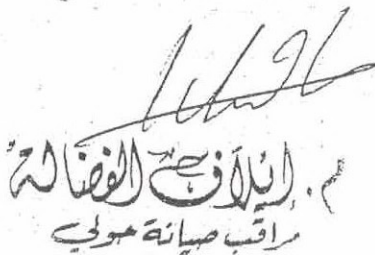 م. إيلاف الفضالة
مراقب صيانة حولي